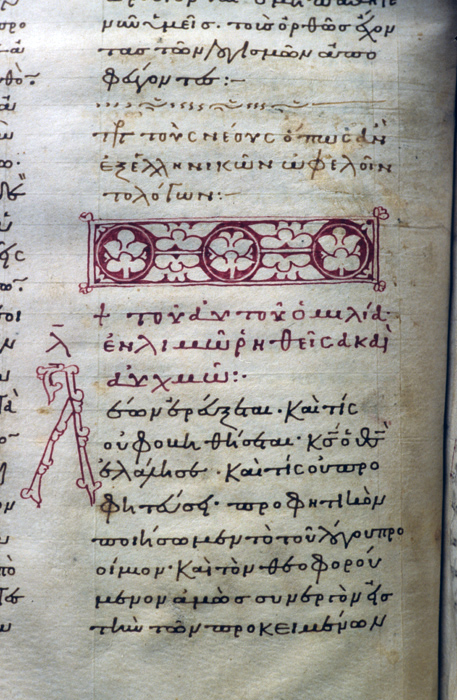 νῦν ὑμεῖς. τοὺς ὀρθῶς ἔχον
τας τῶν λογισμῶν ἀπο
φεύγοντες:–
πρὸς τοὺς νέους ὅπως ἂν
ἐξ ἑλληνικῶν ὠφελοῖν
το λόγων:–
+ τοῦ αὐτοῦ ὁμιλία
ἐν λιμῶ ῥηθεῖσα καὶ
αὐχμῶ:·
Λέων ἐρεύξεται· Καὶ τίς
οὐ φοβηθήσεται· Κς̅ ὁ θς̅
ἐλάλησε· Καὶ τίς οὐ προ
φητεύσει· προφητικὸν
ποιήσωμεν τὸ τοῦ λόγου προ
οίμιον· Καὶ τὸν θεοφορού
μενον ἀμὼς συνεργὸν εἰς
τὴν τῶν προκειμένων